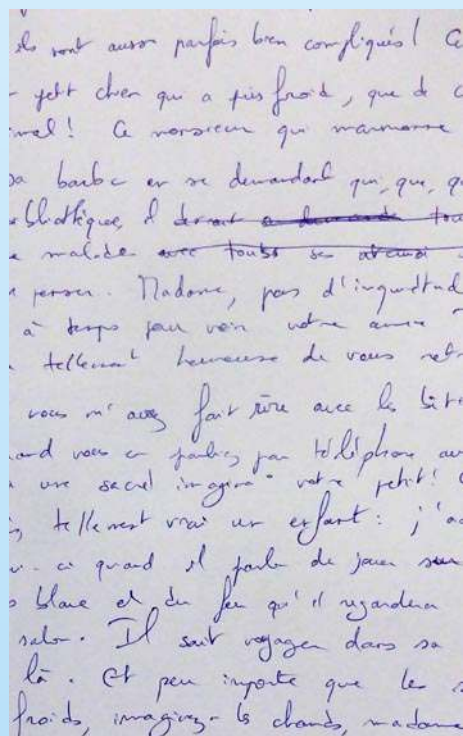 ils sont aussi parfois bien compliqués! C
petit chien qui a pris froid, que de c
imal! Ce monsieur qui marmonne
sa barbe en se demandant qui, que, qu
bliothèque, il devrait a demandé tou
malade avec toutes ses
penser. Madame, pas d'inquiétud
à temps pour voir votre amie
tellement heureuse de vous retr
vous m'avez fait rire avec les bêt
and vous en parliez par téléphone av
une sacré imagin° votre petit!
tellement vrai un enfant: j'a
ci quand il parle de jouer sur
blanc et du feu qu'il regardera
salon. Il sait voyager dans sa
là. Et peu importe que les s
froids, imaginez-les chauds, madame